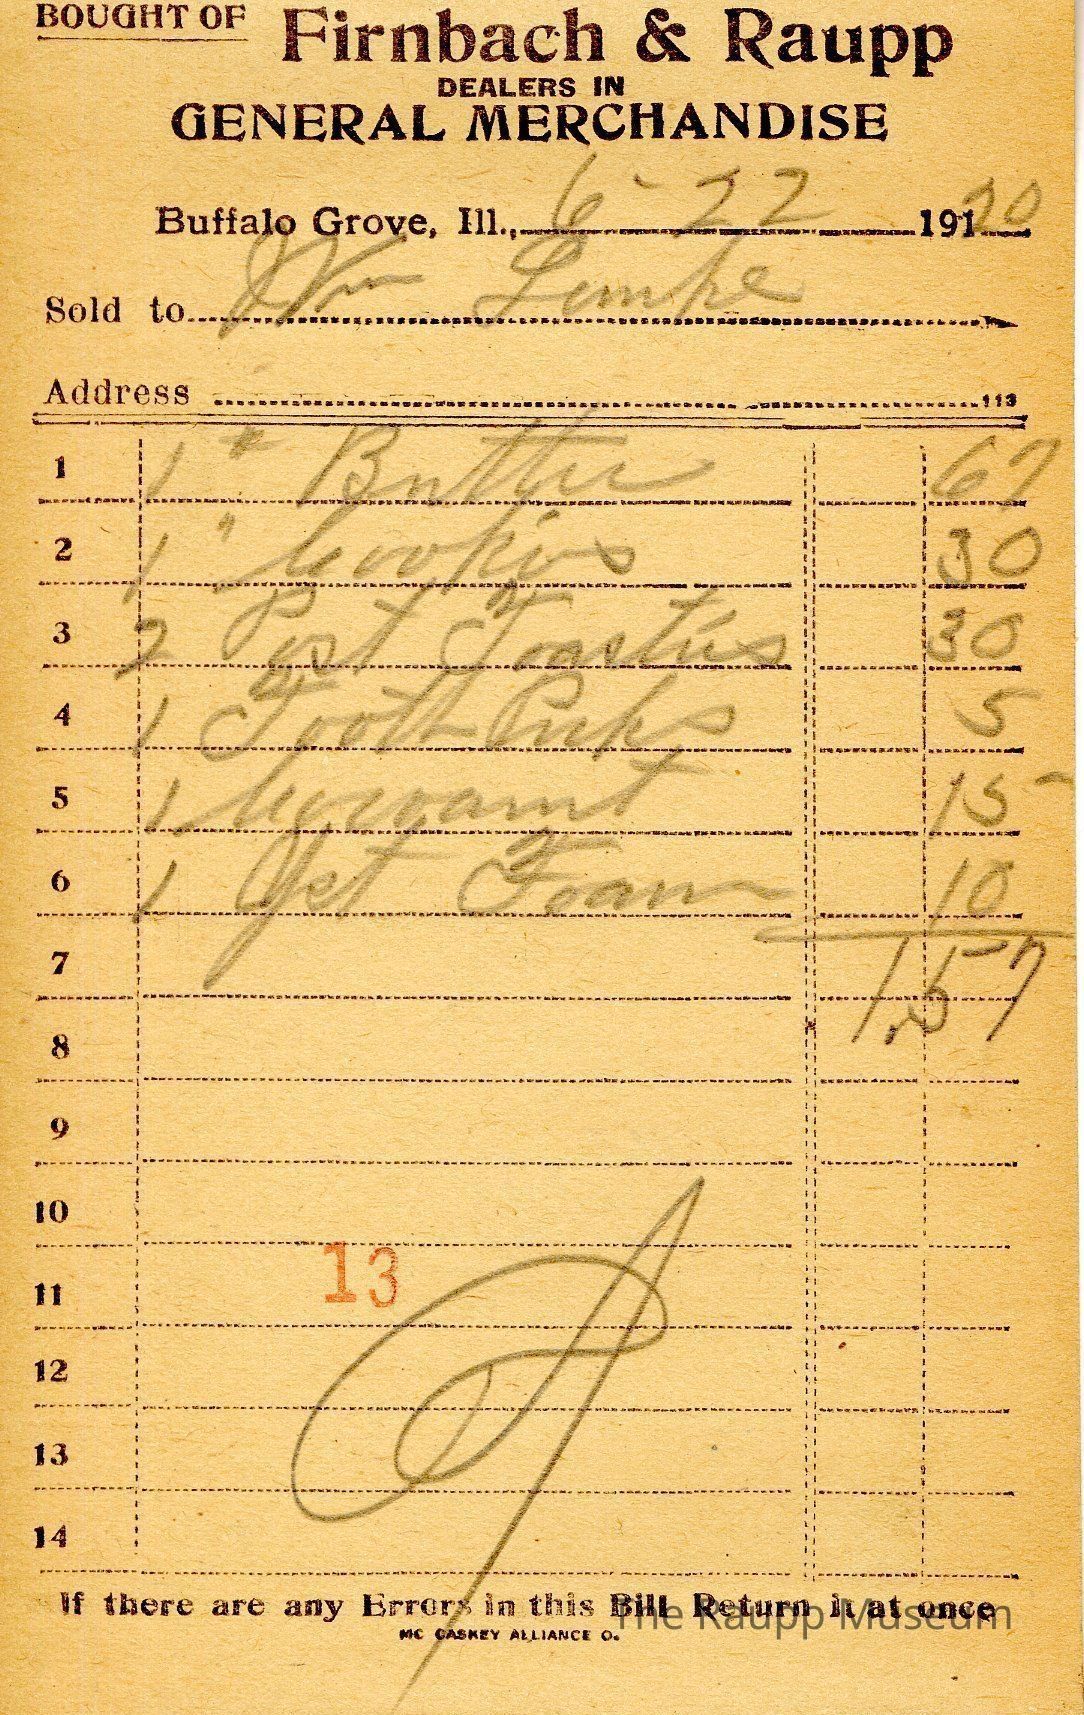 BOUGHT OF Firnbach & Raupp
DEALERS IN
GENERAL MERCHANDISE
Buffalo Grove, Ill., 6-22 19120
Sold to Wm Lempke
Address 113
1 1 # Butter 67
2 1 " Cookies 30
3 2 Post Toasties 30
4 1 Tooth Picks 5
5 1 15
6 1 Yst Foam 10
7 1.57
8
9
10
11 13
12
13
14
If there are any Errors in this Bill Return it at once
MC CASKEY ALLIANCE O.
The Raupp Museum